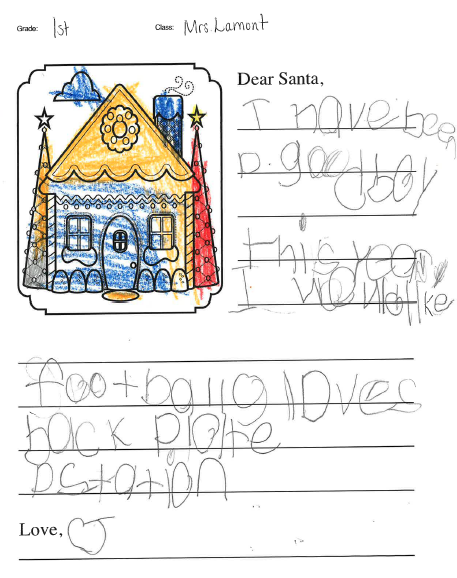 Grade: 1st
Class: Mrs. Lamont
Dear Santa,
I have been
a good boy
this year
I would like
football gloves
back plate
pstation
Love, CJ